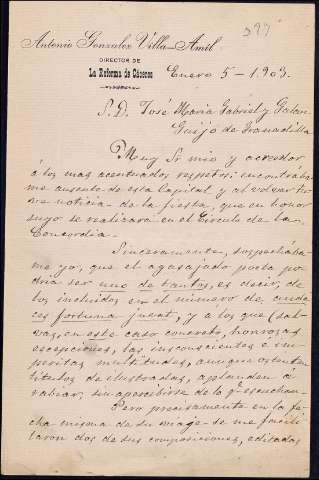 599
Antonio Gonzalez Villa-Amil
DIRECTOR DE
La Reforma de Cáceres
Enero 5-1903.
S. D. José Maria Gabriel y Galan
Guijo de Granadilla
Muy Sr mio y acreedor
á los mas acentuados respetos: encontraba
me ausente de esta Capital y al volver tu
ve noticia de la fiesta, que en honor
suyo se realizara en el Círculo de la
Concordia.
Sinceramente, sospechaba
me yo, que el agasajado poeta po
dria ser uno de tantos, es decir, de
los incluidos en el número de
fortuna juvat, y a los que (sal
vas, en este caso concreto, honrosas
escepciones, las insconscientes é im
peritas multitudes, aunque ostenten
titulos de ilustradas, aplauden á
rabiar, sin apercibirse de lo q. escuchan.
Pero precisamente en la fe
cha misma de su viage se me facili
taron dos de sus composiciones, editadas